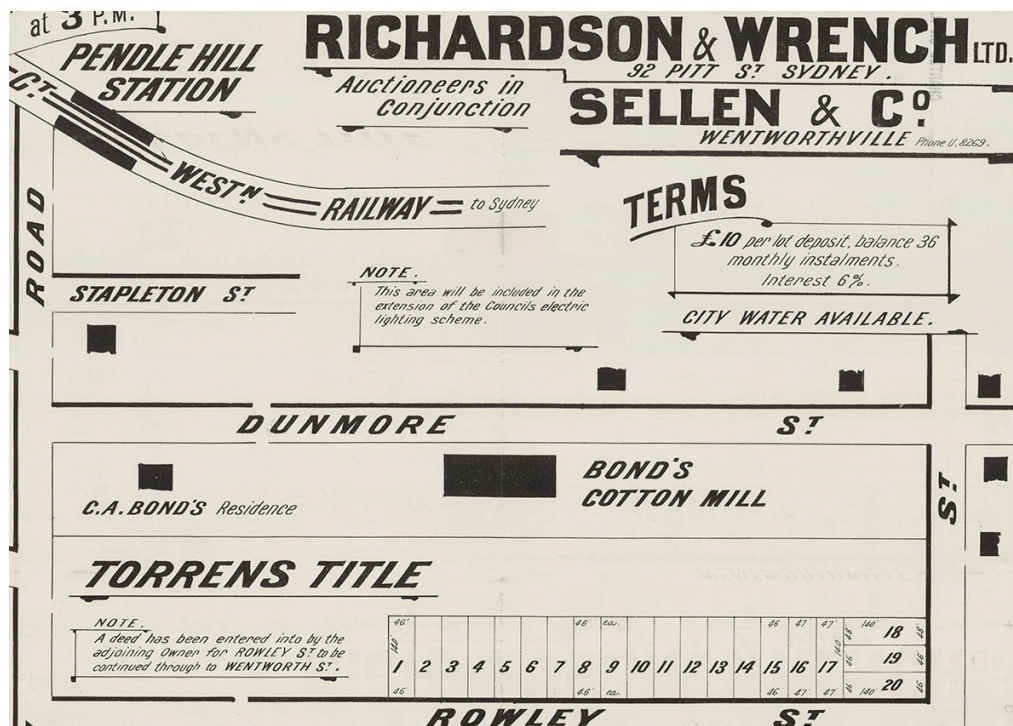 at 3 P.M.
PENDLE HILL
STATION
RICHARDSON & WRENCH LTD.
92 PITT ST SYDNEY.
Auctioneers in
Conjunction
SELLEN & CO.
WENTWORTHVILLE Phone U.8269.
WESTN RAILWAY to Sydney
ROAD
TERMS
£10 per lot deposit, balance 36
monthly instalments.
Interest 6%.
CITY WATER AVAILABLE.
NOTE.
This area will be included in the
extension of the Councils electric
lighting scheme.
STAPLETON ST
DUNMORE ST
BOND'S
COTTON MILL
C.A. BOND'S Residence
ST
TORRENS TITLE
NOTE.
A deed has been entered into by the
adjoining Owner for ROWLEY ST to be
continued through to WENTWORTH ST.
46' 46' ea. 46 47 47' 48' 140' 18 48'
140' 1 2 3 4 5 6 7 8 9 10 11 12 13 14 15 16 17 140' 46' 19 46'
46' 46' ea. 46 47' 47' 46 140' 20 46
ROWLEY ST